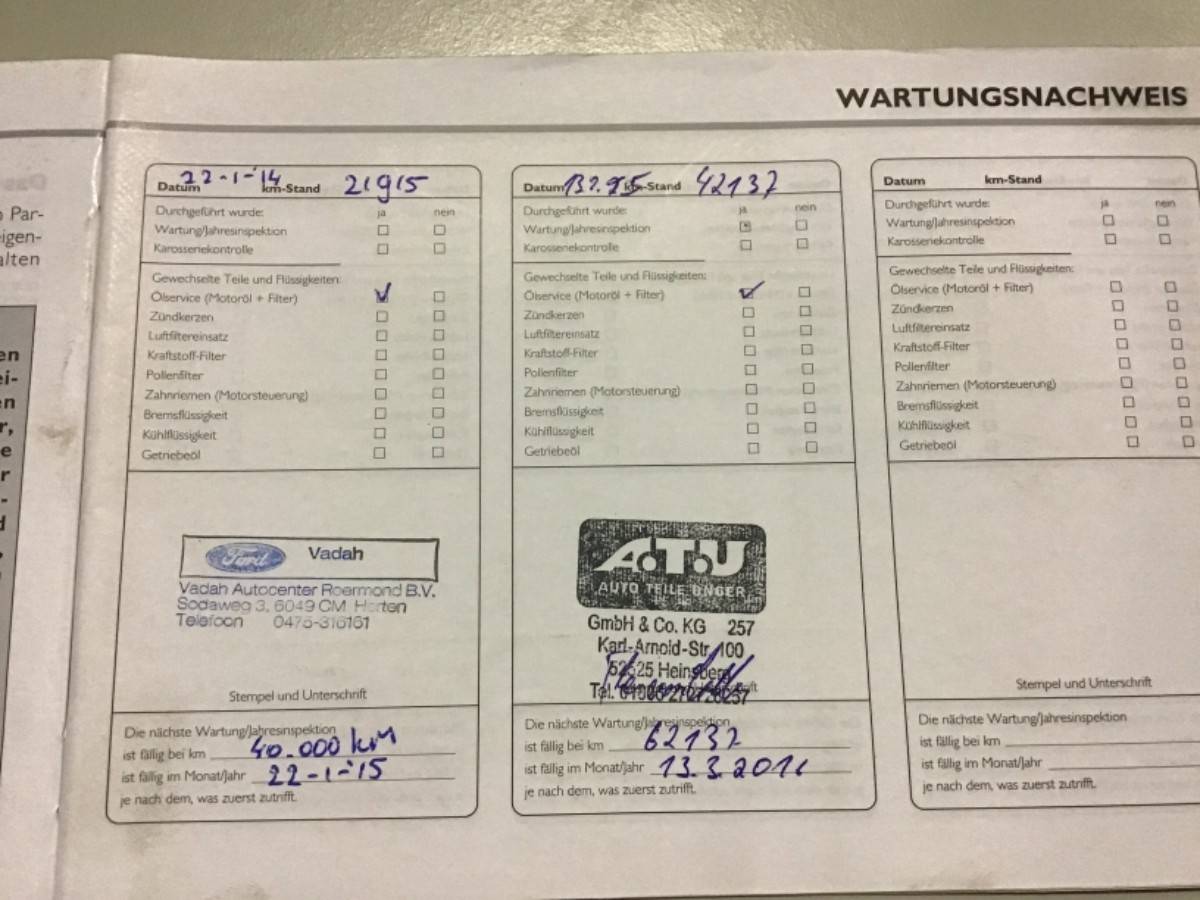 WARTUNGSNACHWEIS
Par-
eigen-
alten
en
ei-
en
r,
e
r
-
d
Datum 22-1-'14 km-Stand 21915
Durchgeführt wurde: ja nein
Wartung/Jahresinspektion
Karosseriekontrolle
Gewechselte Teile und Flüssigkeiten:
Ölservice (Motoröl + Filter)
Zündkerzen
Luftfiltereinsatz
Kraftstoff-Filter
Pollenfilter
Zahnriemen (Motorsteuerung)
Bremsflüssigkeit
Kühlflüssigkeit
Getriebeöl
Ford Vadah
Vadah Autocenter Roermond B.V.
Sodaweg 3, 6049 CM Herten
Telefoon 0475-316161
Stempel und Unterschrift
Die nächste Wartung/Jahresinspektion
ist fällig bei km 40.000 km
ist fällig im Monat/Jahr 22-1-'15
je nach dem, was zuerst zutrifft.
Datum km-Stand 42137
Durchgeführt wurde: ja nein
Wartung/Jahresinspektion
Karosseriekontrolle
Gewechselte Teile und Flüssigkeiten:
Ölservice (Motoröl + Filter)
Zündkerzen
Luftfiltereinsatz
Kraftstoff-Filter
Pollenfilter
Zahnriemen (Motorsteuerung)
Bremsflüssigkeit
Kühlflüssigkeit
Getriebeöl
A.T.U
AUTO TEILE UNGER
GmbH & Co. KG 257
Karl-Arnold-Str. 100
52525 Heinsberg
Tel.
Die nächste Wartung/Jahresinspektion
ist fällig bei km 62137
ist fällig im Monat/Jahr 13.3.2016
je nach dem, was zuerst zutrifft.
Datum km-Stand
Durchgeführt wurde: ja nein
Wartung/Jahresinspektion
Karosseriekontrolle
Gewechselte Teile und Flüssigkeiten:
Ölservice (Motoröl + Filter)
Zündkerzen
Luftfiltereinsatz
Kraftstoff-Filter
Pollenfilter
Zahnriemen (Motorsteuerung)
Bremsflüssigkeit
Kühlflüssigkeit
Getriebeöl
Stempel und Unterschrift
Die nächste Wartung/Jahresinspektion
ist fällig bei km
ist fällig im Monat/Jahr
je nach dem, was zuerst zutrifft.